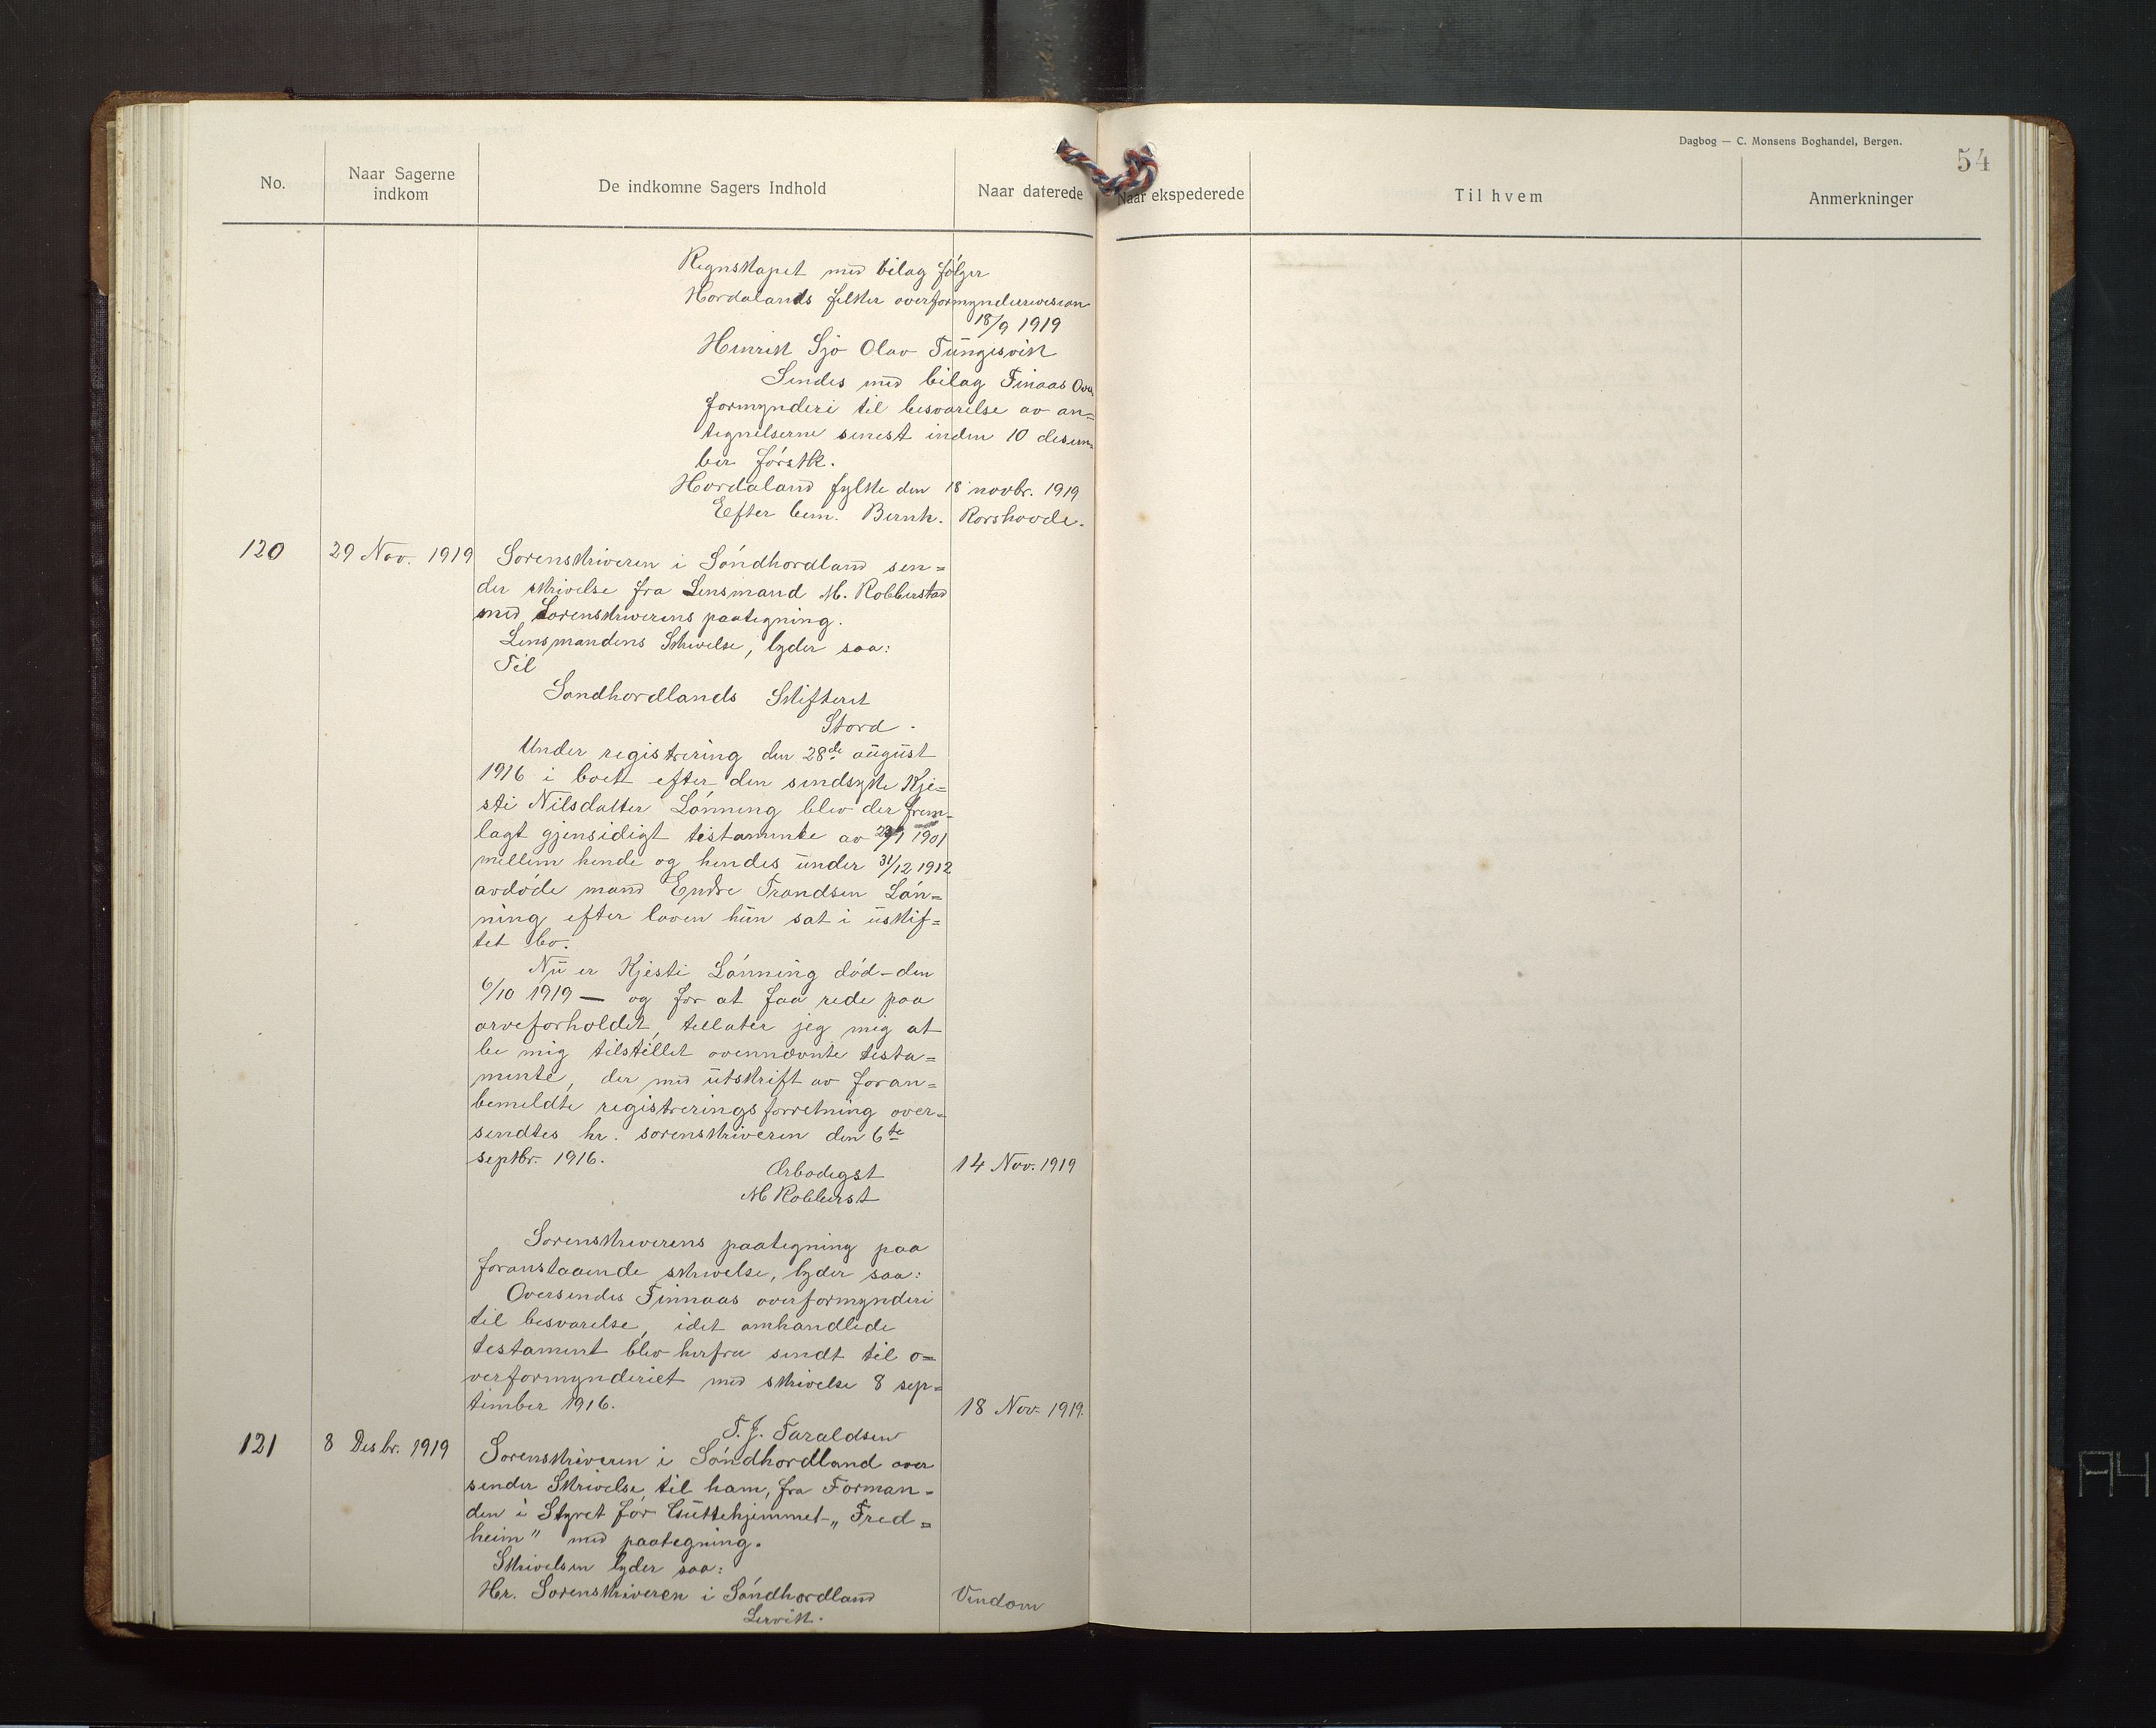 Dagbog — C. Monsens Boghandel, Bergen.
54
No.
Naar Sagerne
indkom
De indkomne Sagers Indhold
Naar daterede
Naar ekspederede
Til hvem
Anmerkninger
Regnskapet med bilag følger
Hordalands felker overformynderrevision
18/9 1919
Henrik Sjo Olav Tungesvik
Sendes med bilag Finaas Over
formynderi til besvarelse av an=
tegnelserne senest inden 10 desem=
ber førstk.
Hordaland fylke den 18 novbr. 1919
Efter bem. Bernh. Rorshovde.
120
29 Nov. 1919
Sorenskriveren i Söndhordland sen=
der skrivelse fra Lensmand M. Robberstad
med Sorenskriverens paategning.
Lensmandens Skrivelse, lyder saa:
Til
Sondhordlands Skifteret
Stord.
Under registrering den 28de august
1916 i boet efter den sindsyke Kje=
sti Nilsdatter Lönning blev der frem=
lagt gjensidigt testamente av 1901
mellem hende og hendes under 31/12 1912
avdöde mand Endre Trandsen Lön=
ning efter loven hun sat i uskif=
tet bo.
Nu er Kjesti Lönning död — den
6/10 1919 — og for at faa rede paa
arveforholdet, tillater jeg mig at
be mig tilstillet ovennævnte testa=
mente, der med utskrift av foran=
bemeldte registreringsforretning over=
sendtes hr. sorenskriveren den 6te
septbr. 1916.
14 Nov. 1919
Ærbødigst
M Robberst
Sorenskriverens paategning paa
foranstaaende skrivelse, lyder saa:
Oversendes Finnaas overformynderi
til besvarelse, idet omhandlede
testament blev herfra sendt til o=
verformynderiet med skrivelse 8 sep=
tember 1916.
18 Nov. 1919.
T. J. Taraldsen
121
8 Desbr. 1919
Sorenskriveren i Söndhordland over
sender Skrivelse til ham, fra Forman=
den i Styret for Guttehjemmet „Fred=
heim" med paategning.
Skrivelsen lyder saa:
Hr. Sorenskriveren i Söndhordland
Lervik.
Vendom
A4